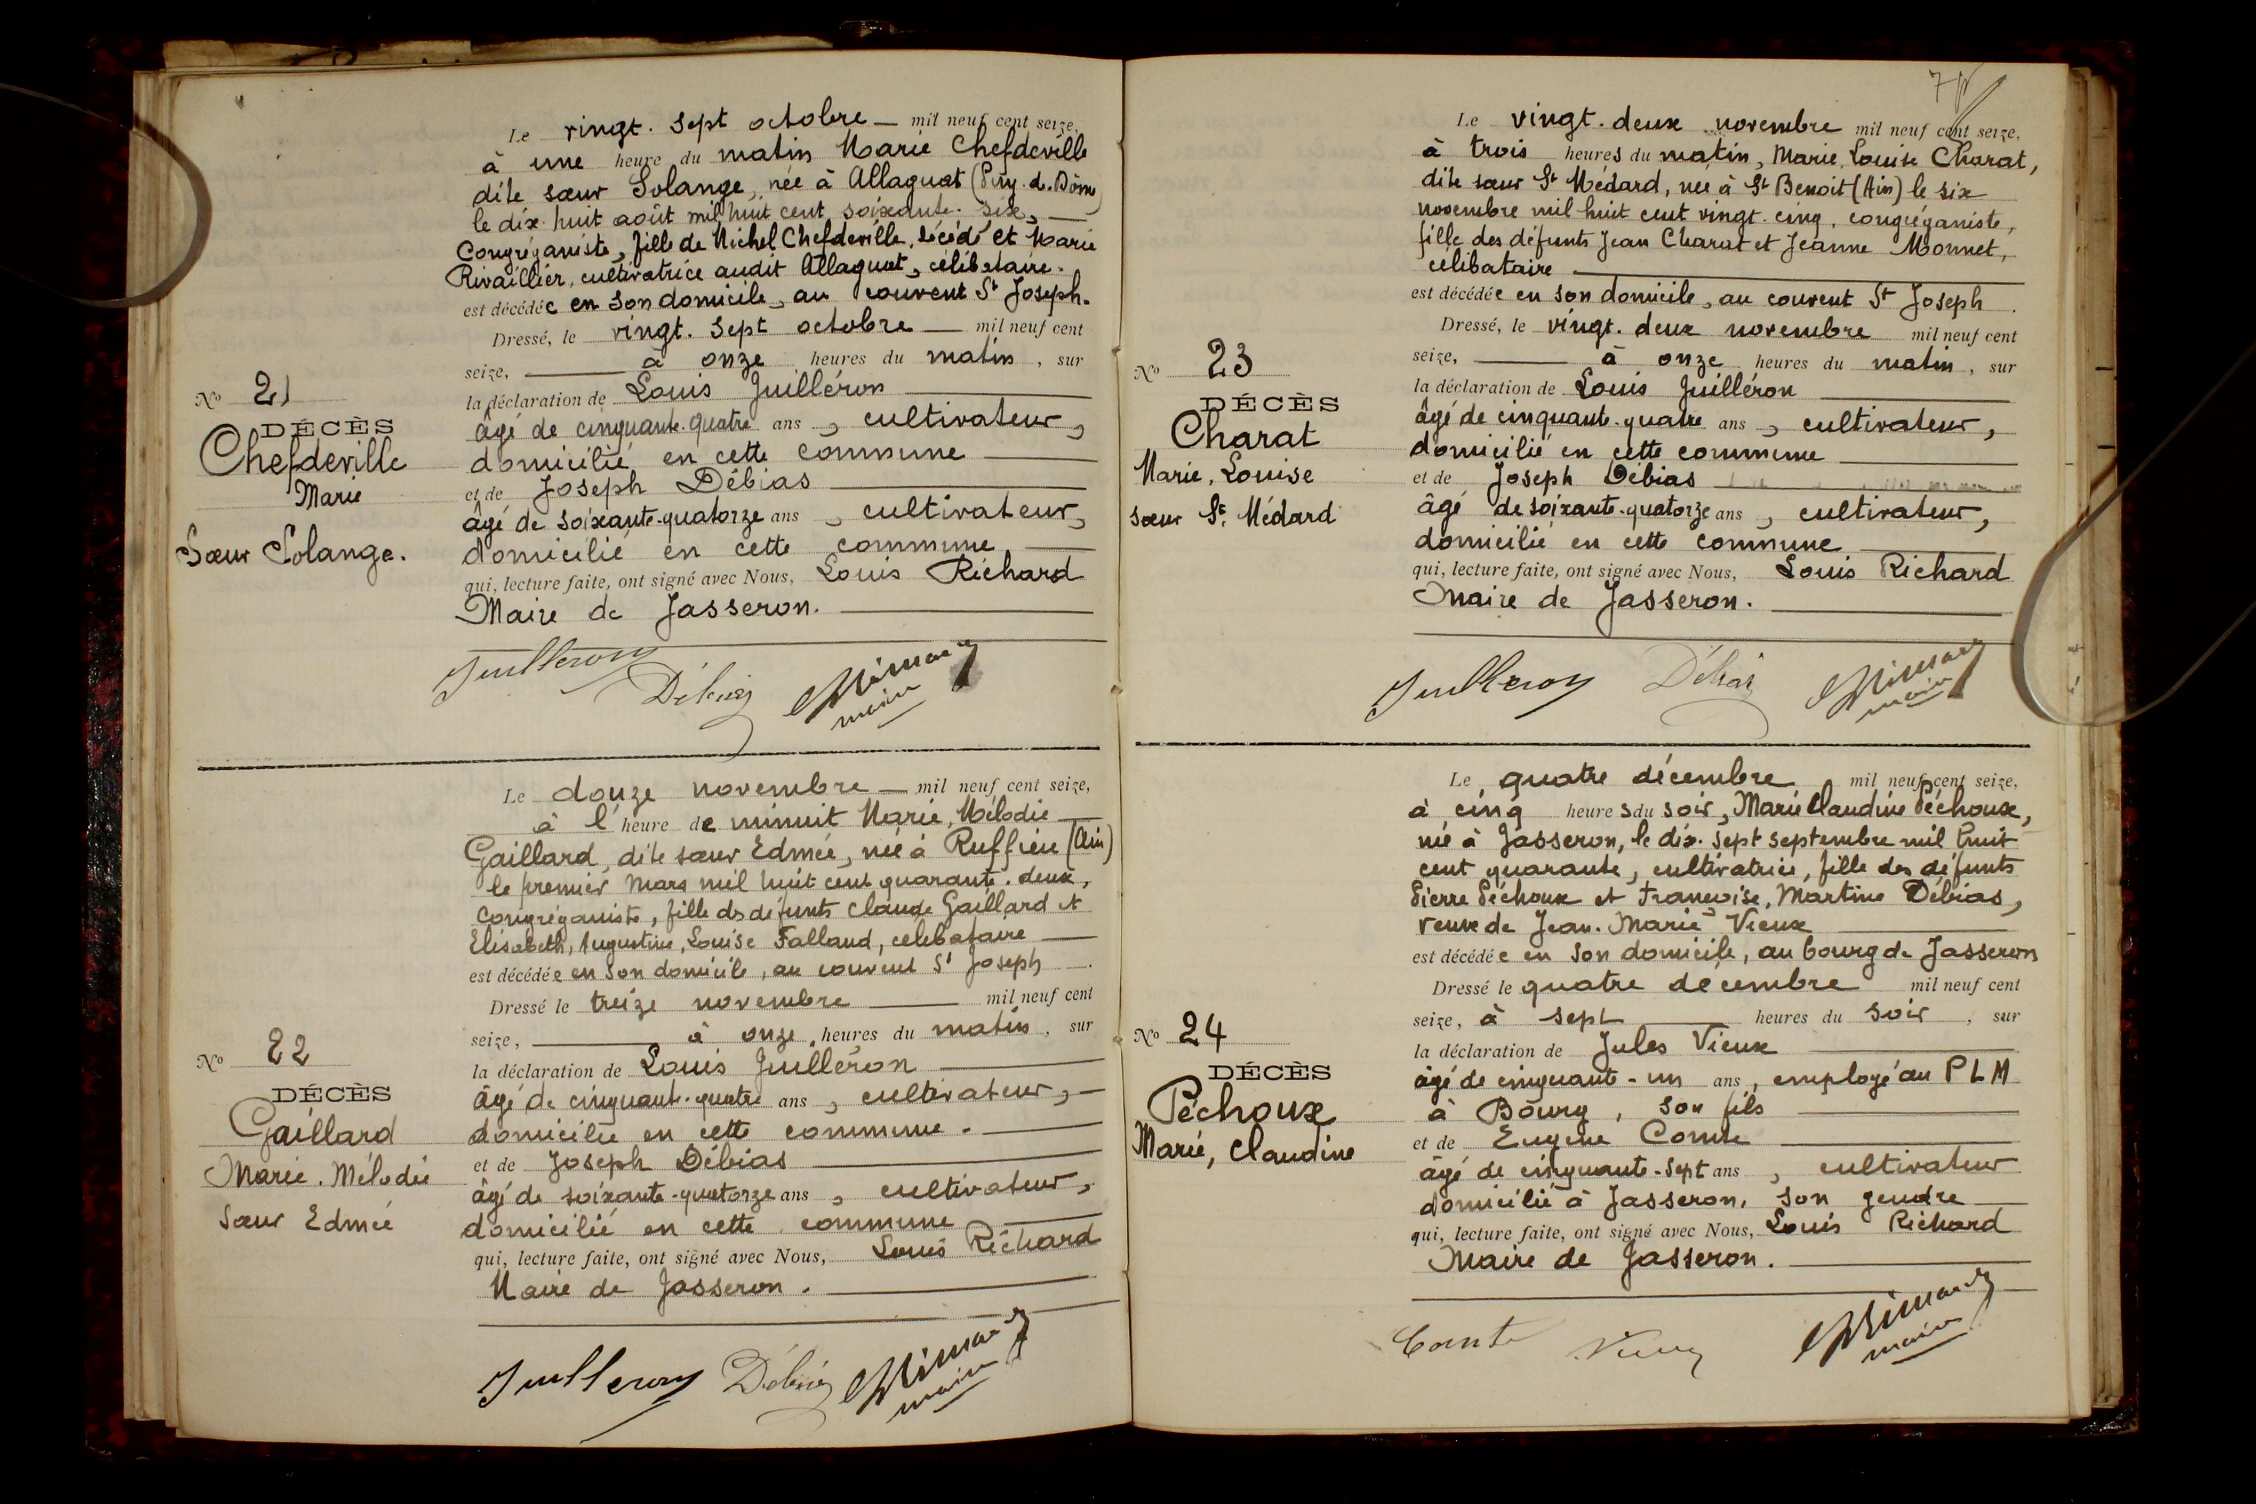 Le vingt. sept octobre — mil neuf cent seize,
à une heure du matin Marie Chefdeville
dite sœur Solange, née à Allagnat (Puy-d.-Dôme)
le dix. huit août mil huit cent soixante. six, —
Congréganiste, fille de Michel Chefdeville, décédé et Marie
Rivaillier, cultivatrice audit Allagnat, célibataire.
est décédée en son domicile, au couvent St Joseph.
Dressé, le vingt. sept octobre — mil neuf cent
seize, — à onze heures du matin, sur
la déclaration de Louis Juilléron
âgé de cinquante-quatre ans, cultivateur,
domicilié en cette commune
et de Joseph Débias
âgé de soixante-quatorze ans, cultivateur,
domicilié en cette commune
qui, lecture faite, ont signé avec Nous, Louis Richard
Maire de Jasseron.
No 21
DÉCÈS
Chefdeville
Marie
Sœur Solange.
Juilleron Débias
maire
Le douze novembre — mil neuf cent seize,
à l'heure de minuit Marie, Mélodie
Gaillard, dite sœur Edmée, née à Ruffieu (Ain)
le premier mars mil huit cent quarante. deux,
congréganiste, fille des défunts Claude Gaillard et
Elisabeth, Augustine, Louise Falland, célibataire
est décédée en son domicile, au couvent St Joseph
Dressé le treize novembre — mil neuf cent
seize, — à onze heures du matin, sur
la déclaration de Louis Juilléron
âgé de cinquante-quatre ans, cultivateur, —
domicilié en cette commune.
et de Joseph Débias
âgé de soixante-quatorze ans, cultivateur,
domicilié en cette commune
qui, lecture faite, ont signé avec Nous, Louis Richard
Maire de Jasseron.
No 22
DÉCÈS
Gaillard
Marie. Mélodie
Sœur Edmée
Juilleron Débias
maire
Le vingt. deux novembre mil neuf cent seize,
à trois heures du matin, Marie, Louise Charat,
dite sœur St Médard, née à St Benoit (Ain) le six
novembre mil huit cent vingt. cinq, congréganiste,
fille des défunts Jean Charat et Jeanne Monnet,
célibataire
est décédée en son domicile, au couvent St Joseph
Dressé, le vingt. deux novembre mil neuf cent
seize, — à onze heures du matin, sur
la déclaration de Louis Juilléron
âgé de cinquante-quatre ans, cultivateur,
domicilié en cette commune
et de Joseph Débias
âgé de soixante-quatorze ans, cultivateur,
domicilié en cette commune
qui, lecture faite, ont signé avec Nous, Louis Richard
Maire de Jasseron.
No 23
DÉCÈS
Charat
Marie, Louise
sœur St. Médard
Juilleron Débias
maire
Le quatre décembre mil neuf cent seize,
à cinq heures du soir, Marie Claudine Péchoux,
née à Jasseron, le dix. sept septembre mil huit
cent quarante, cultivatrice, fille des défunts
Pierre Péchoux et Françoise, Martine Débias,
veuve de Jean. Marie Vieux
est décédée en son domicile, au bourg de Jasseron
Dressé le quatre décembre mil neuf cent
seize, à sept — heures du soir, sur
la déclaration de Jules Vieux
âgé de cinquante-un ans, employé au PLM
à Bourg, son fils
et de Eugène Comte
âgé de cinquante-sept ans, cultivateur
domicilié à Jasseron, son gendre
qui, lecture faite, ont signé avec Nous, Louis Richard
Maire de Jasseron.
No 24
DÉCÈS
Péchoux
Marie, Claudine
Comte Vieux
maire